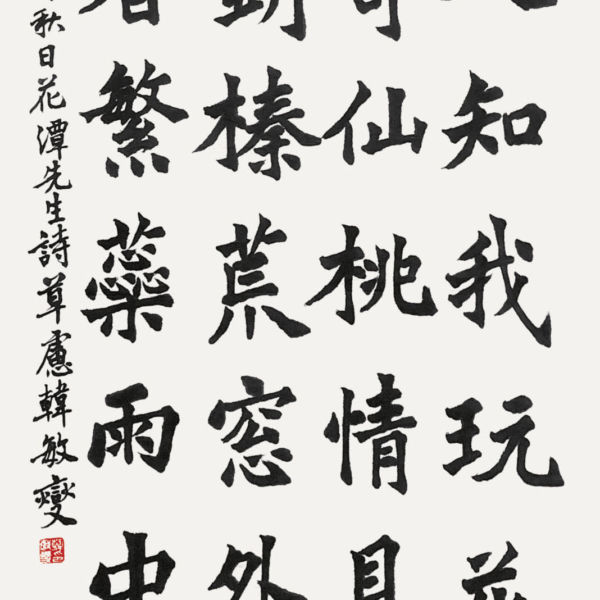 知我玩
仙桃情
榛荒窓外
繁蘂雨中
秋日花潭先生詩草慮韓敏燮